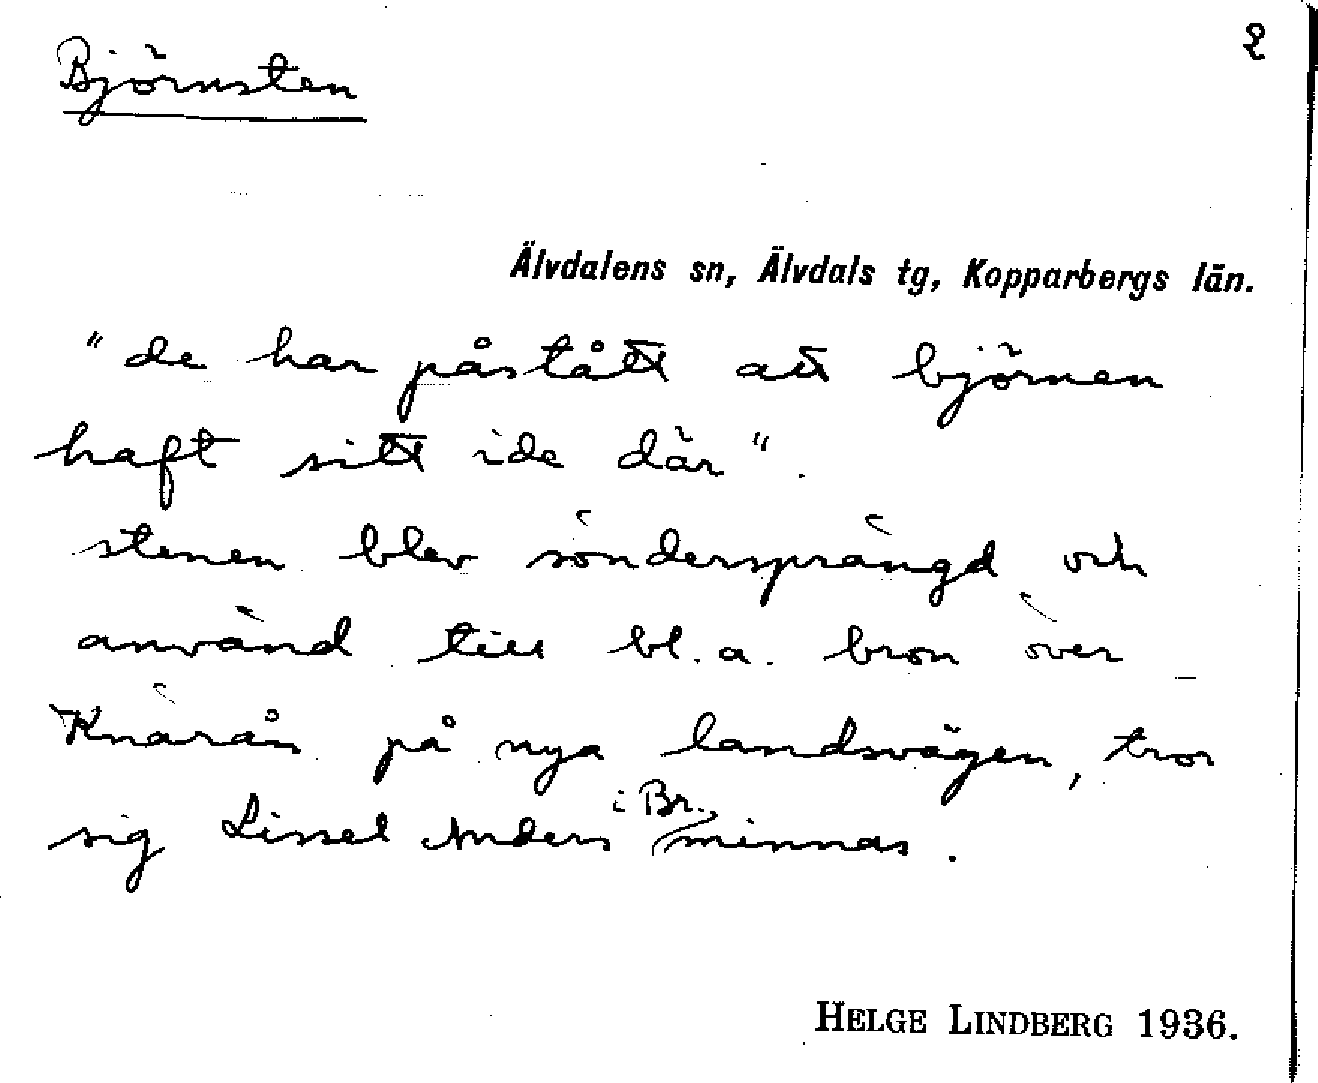 2
Björnsten
Älvdalens sn, Älvdals tg, Kopparbergs län.
"de har påstått att björnen
haft sitt ide där".
stenen blev söndersprängd och
använd till bl.a. bron över
Knärån på nya landsvägen, tror
sig Lissel Anders i Br. minnas.
HELGE LINDBERG 1936.